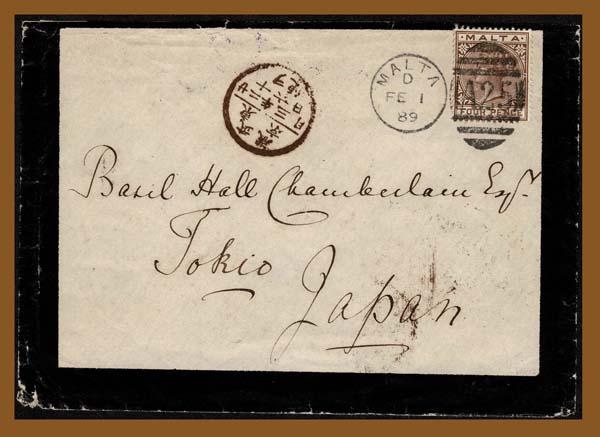 MALTA
FOUR PENCE
A25
MALTA
D
FE 1
89
Basil Hall Chamberlain Esqr.
Tokio
Japan